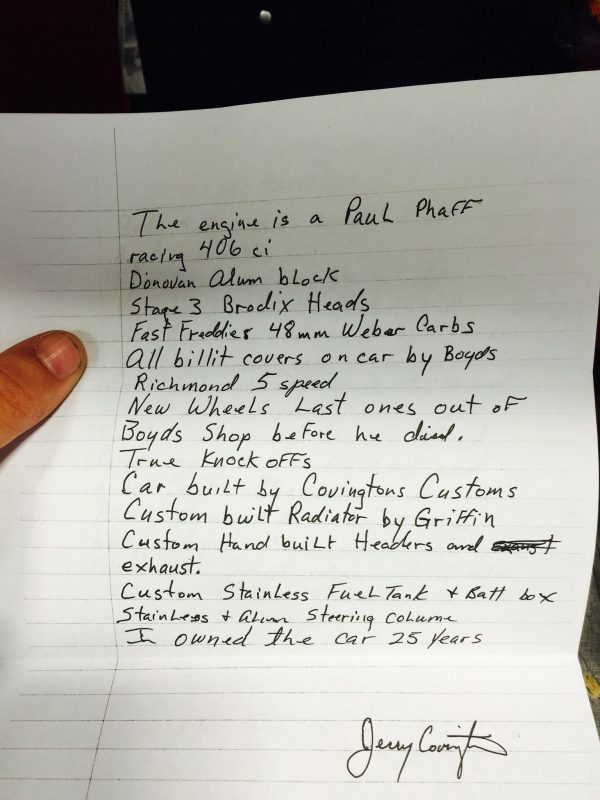 The engine is a Paul Phaff
racing 406 ci
Donovan Alum block
Stage 3 Brodix Heads
Fast Freddies 48mm Weber Carbs
All billit covers on car by Boyds
Richmond 5 speed
New Wheels Last ones out of
Boyds Shop before he died.
True Knock offs
Car built by Covingtons Customs
Custom built Radiator by Griffin
Custom Hand built Headers and
exhaust.
Custom Stainless Fuel Tank + Batt box
Stainless + Alum Steering Colume
I owned the car 25 years
Jerry Covington